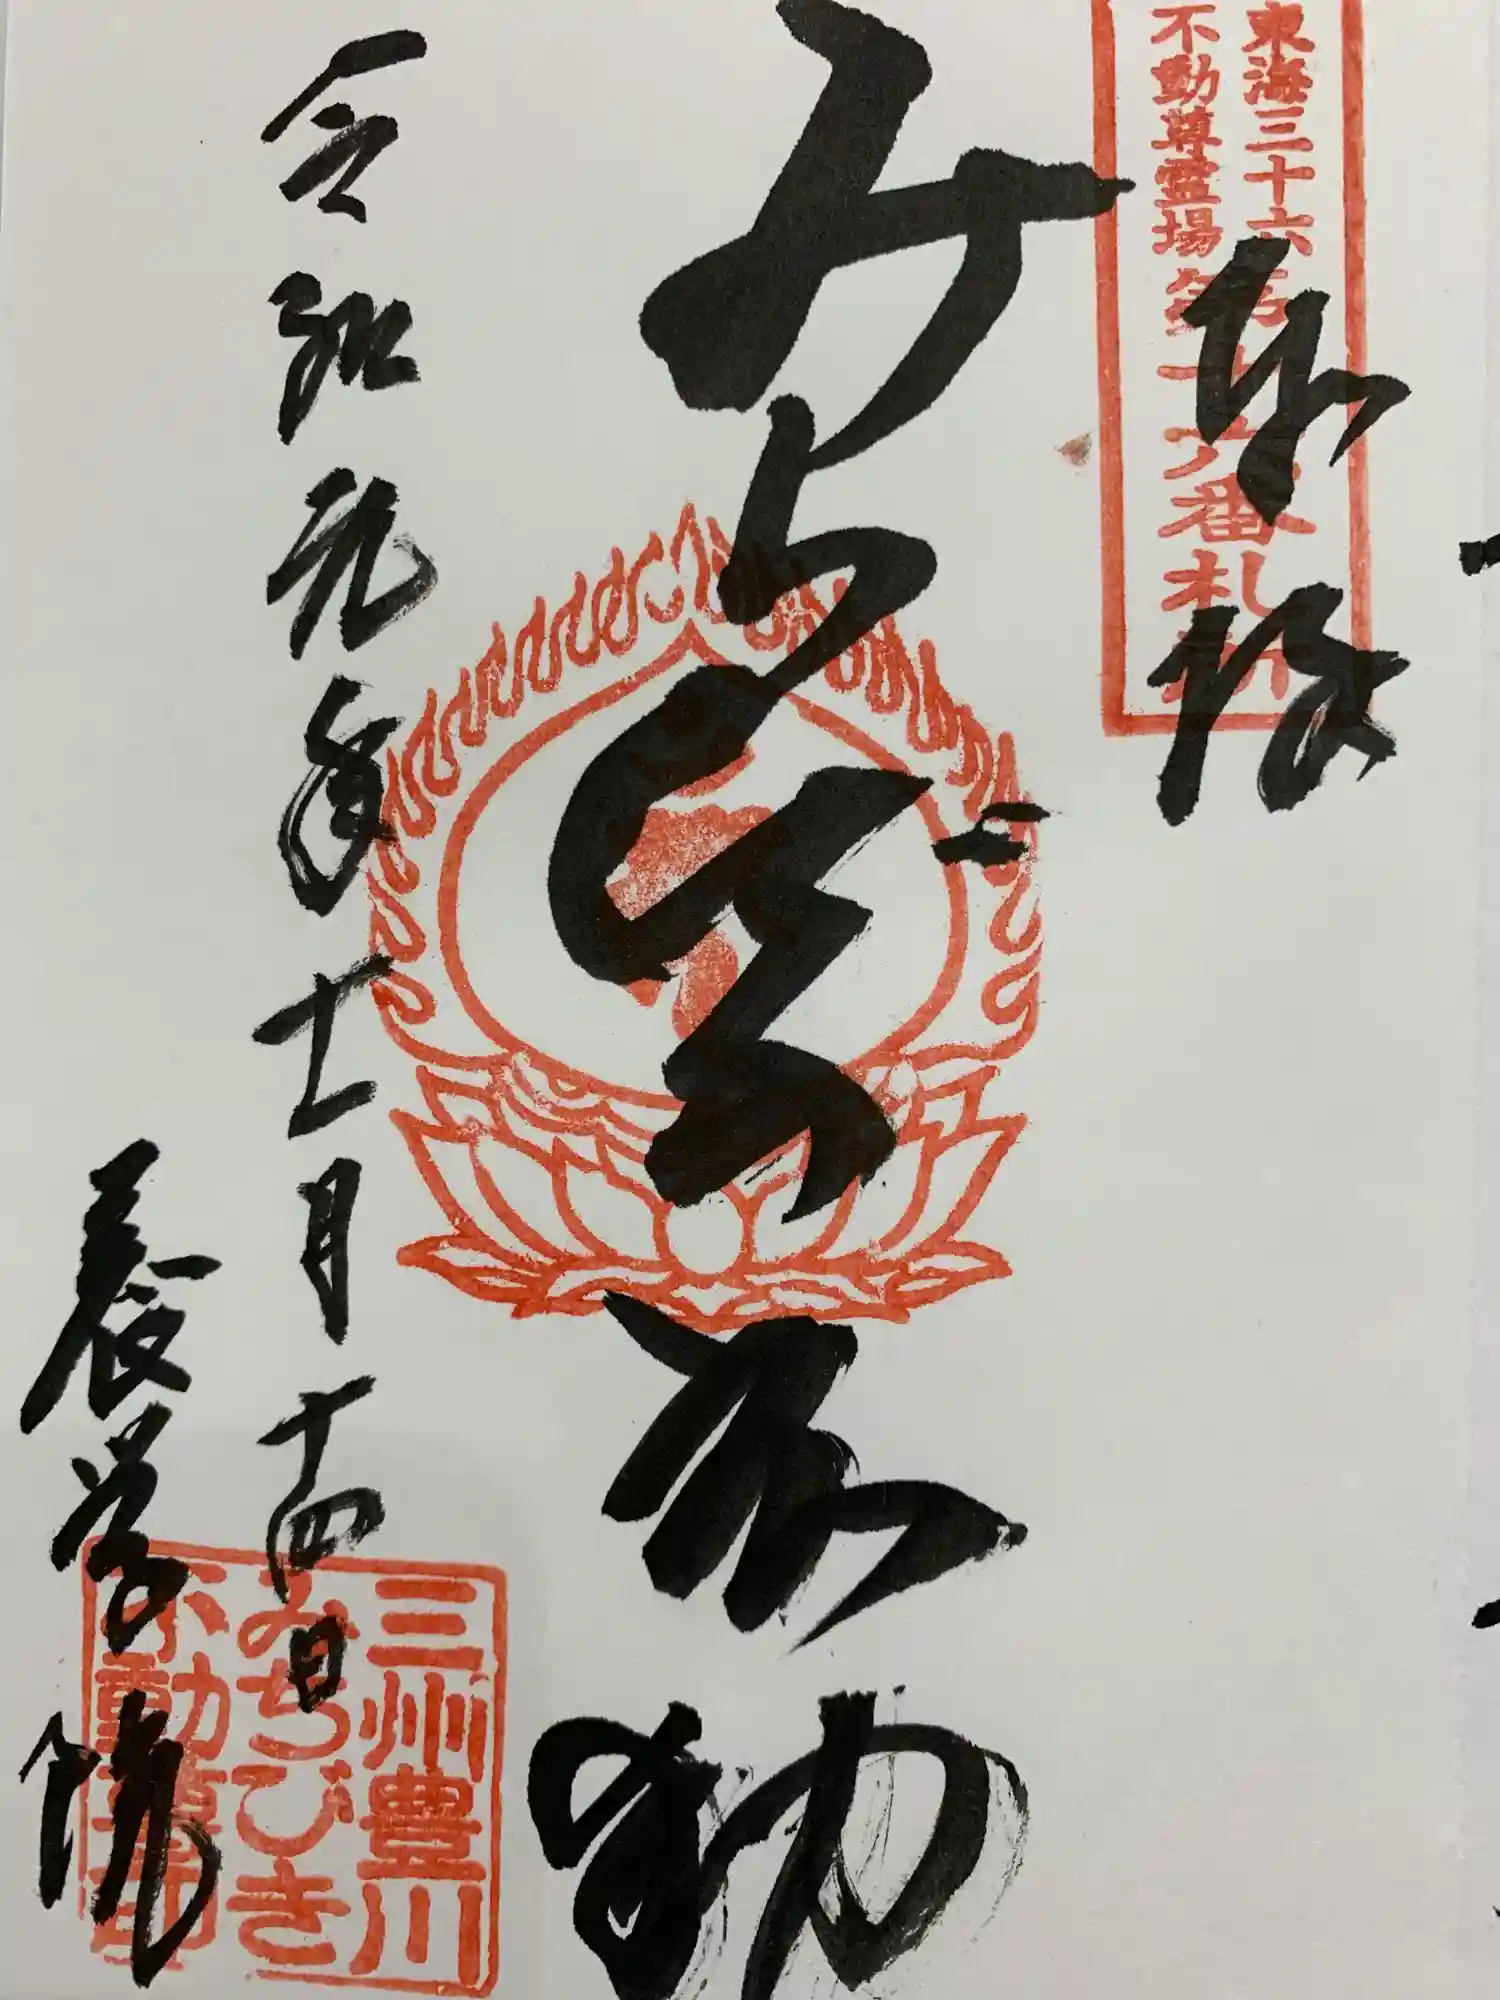 東海三十六
不動尊霊場
第十六番札所
奉拝
みちびき不動
令和元年十一月十四日
養学院
三州豊川
みちびき
不動尊印